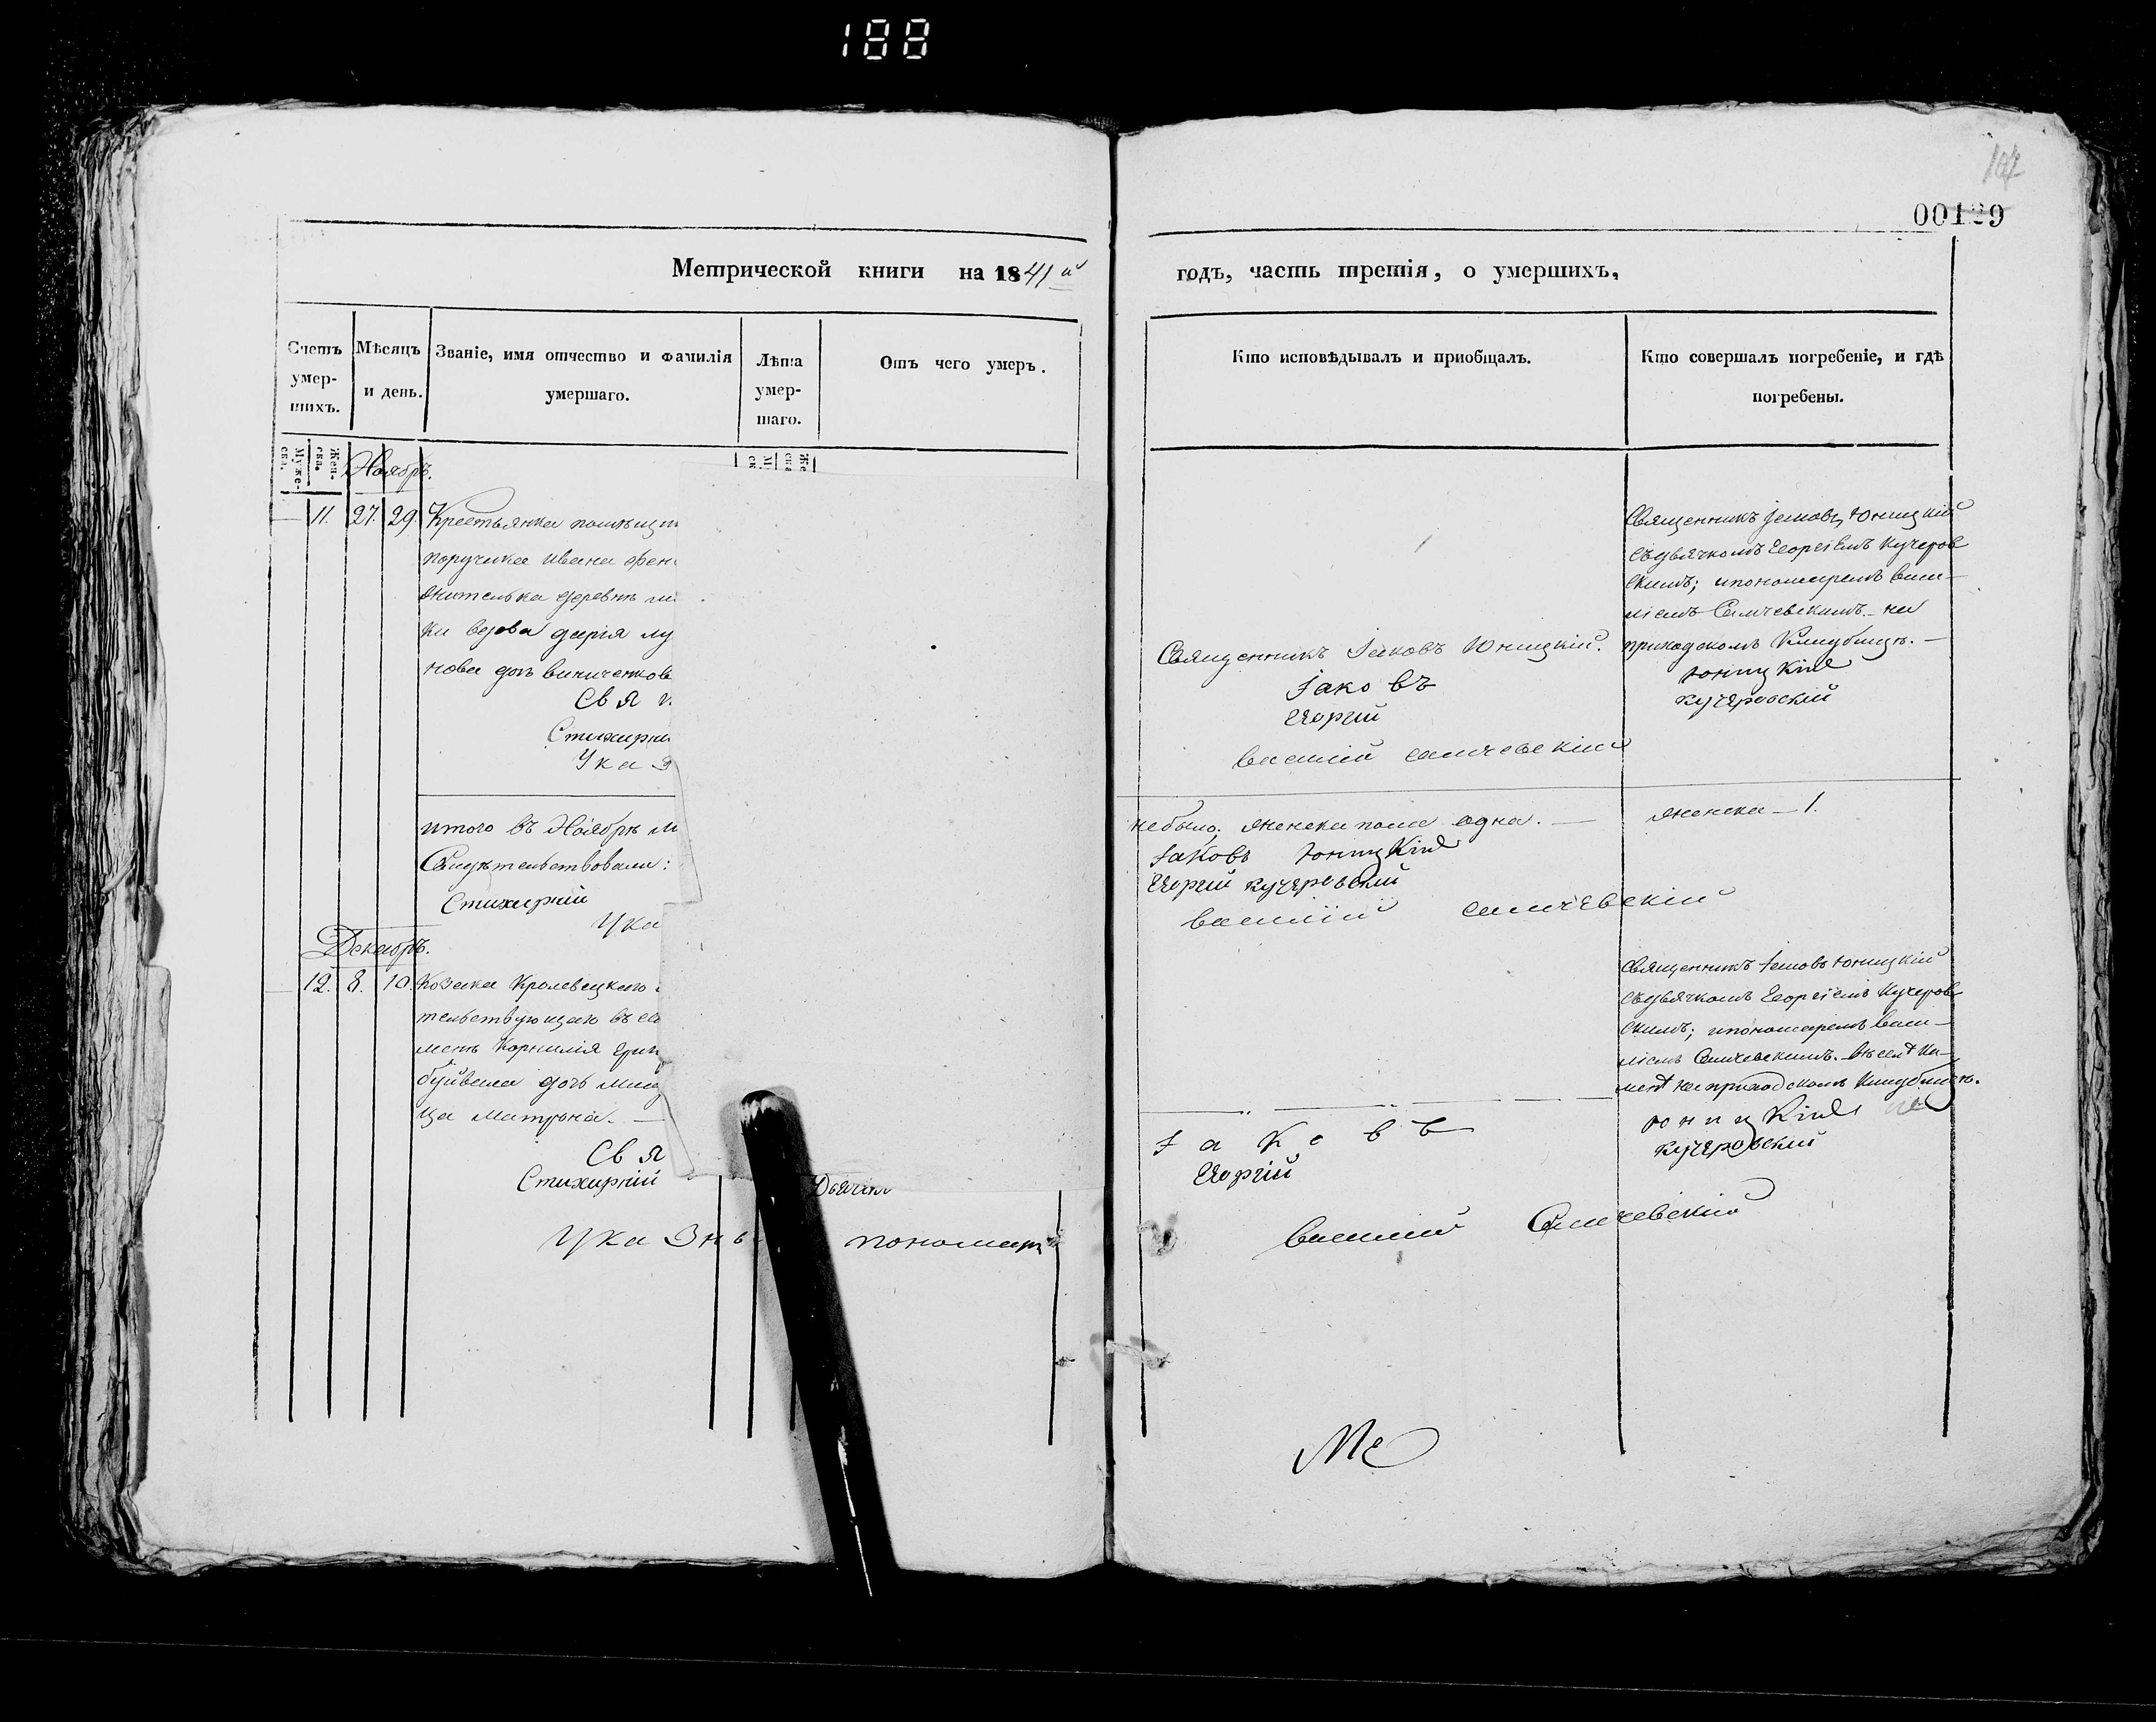 188
00129
Метрической книги на 1841й
годъ, часть третія, о умершихъ,
Счетъ умер-шихъ.
Мѣсяцъ и день.
Званіе, имя отчество и фамилія умершаго.
Лѣта умер-шаго.
Отъ чего умеръ.
Кто исповѣдывалъ и приобщалъ.
Кто совершалъ погребеніе, и гдѣ погребены.
Муже-ска.
Жен-ска.
Ноябрь.
11. 27. 29. Крестьянка помѣщи
поручика Ивана Фен
жителька деревнѣ
ки вдова Дарія Лу
нова дочь Виниченкова
Свя
Стихирн
Ука
Священникъ Іаковъ Юницкій.
Іаковъ
Георгій
Василій Самчевскій
Священникъ Іаковъ Юницкій
съ дьячкомъ Георгіемъ Кучеров
скимъ; и пономаремъ Васи-
ліемъ Самчевскимъ на
приходскомъ Кладбищѣ.
Юницкій
Кучеровскій
итого въ Ноябрѣ м
Свидѣтельствовали:
Стихирній
Ука
не было; женска пола одна. —
женска — 1.
Іаковъ Юницкій
Георгій Кучеровскій
Василій Самчевскій
Декабрь.
12. 8. 10. Козака Кролевецкаго
тельствующаго въ се
менѣ Корнилія Григ
буйвала дочь
ца Матрона. —
Свя
Стихирній
Дьячк
Указн
пономарь
Іаковъ
Георгій
Василій Самчевскій
Священникъ Іаковъ Юницкій
съ дьячкомъ Георгіемъ Кучеров
скимъ; и пономаремъ Васи-
ліемъ Самчевскимъ. въ селѣ Ка-
менѣ на приходскомъ Кладбищѣ.
Юницкій
Кучеровскій
Ме